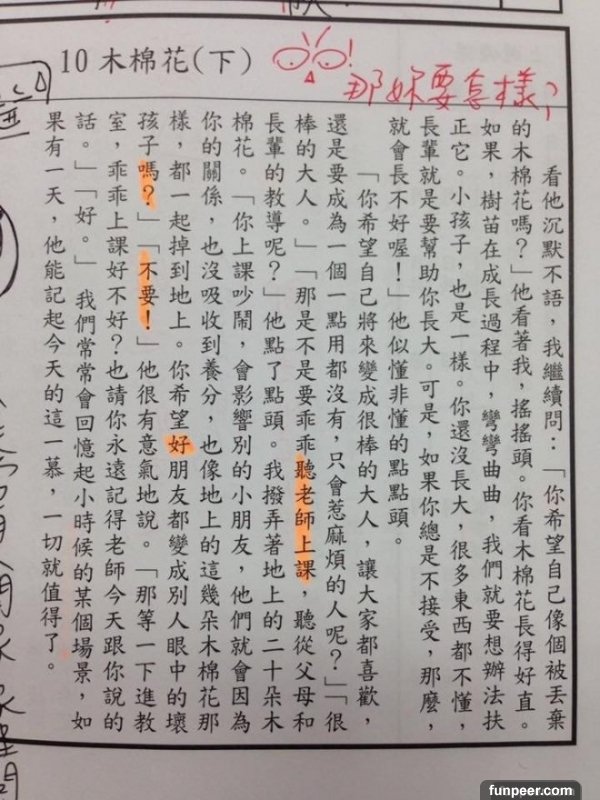 10 木棉花(下)
那妳要怎樣?
看他沉默不語，我繼續問：「你希望自己像個被丟棄
的木棉花嗎？」他看著我，搖搖頭。你看木棉花長得好直。
如果，樹苗在成長過程中，彎彎曲曲，我們就要想辦法扶
正它。小孩子，也是一樣。你還沒長大，很多東西都不懂，
長輩就是要幫助你長大。可是，如果你總是不接受，那麼，
就會長不好喔！」他似懂非懂的點點頭。
「你希望自己將來變成很棒的大人，讓大家都喜歡，
還是要成為一個一點用都沒有，只會惹麻煩的人呢？」「很
棒的大人。」「那是不是要乖乖聽老師上課，聽從父母和
長輩的教導呢？」他點了點頭。我撥弄著地上的二十朵木
棉花。「你上課吵鬧，會影響別的小朋友，他們就會因為
你的關係，也沒吸收到養分，也像地上的這幾朵木棉花那
樣，都一起掉到地上。你希望好朋友都變成別人眼中的壞
孩子嗎？」「不要！」他很有意氣地說。「那等一下進教
室，乖乖上課好不好？也請你永遠記得老師今天跟你說的
話。」「好。」　我們常常會回憶起小時候的某個場景，如
果有一天，他能記起今天的這一幕，一切就值得了。
funpeer.com